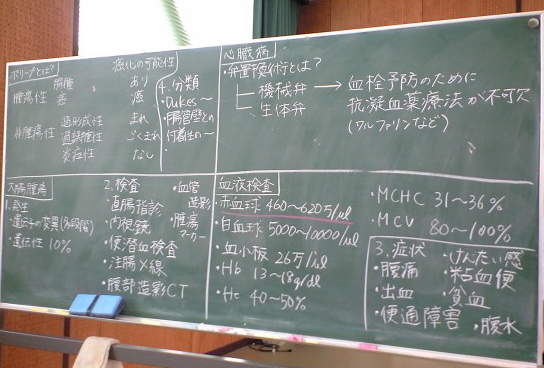 ポリープとは?
癌化の可能性
腫瘍性
腺腫 あり
癌 癌
非腫瘍性
過形成性 まれ
過誤腫性 ごくまれ
炎症性 なし
4.分類
・Dukes〜
・腸管壁との
付着性の〜
心臓病
・弁置換術とは?
機械弁
生体弁
→ 血栓予防のために
抗凝血薬療法が不可欠
(ワルファリンなど)
大腸腫瘍
1.発生
・遺伝子の変異(多段階)
・遺伝性 10%
2.検査
・直腸指診
・内視鏡
・便潜血検査
・注腸X線
・腹部造影CT
・血管
造影
・腫瘍
マーカー
血液検査
・赤血球 460〜620万/μl
・白血球 5000〜10000/μl
・血小板 26万/μl
・Hb 13〜18g/dl
・Hc 40〜50%
・MCHC 31〜36%
・MCV 80〜100%
3.症状
・腹痛
・出血
・便通障害
・けんたい感
・粘血便
・貧血
・腹水